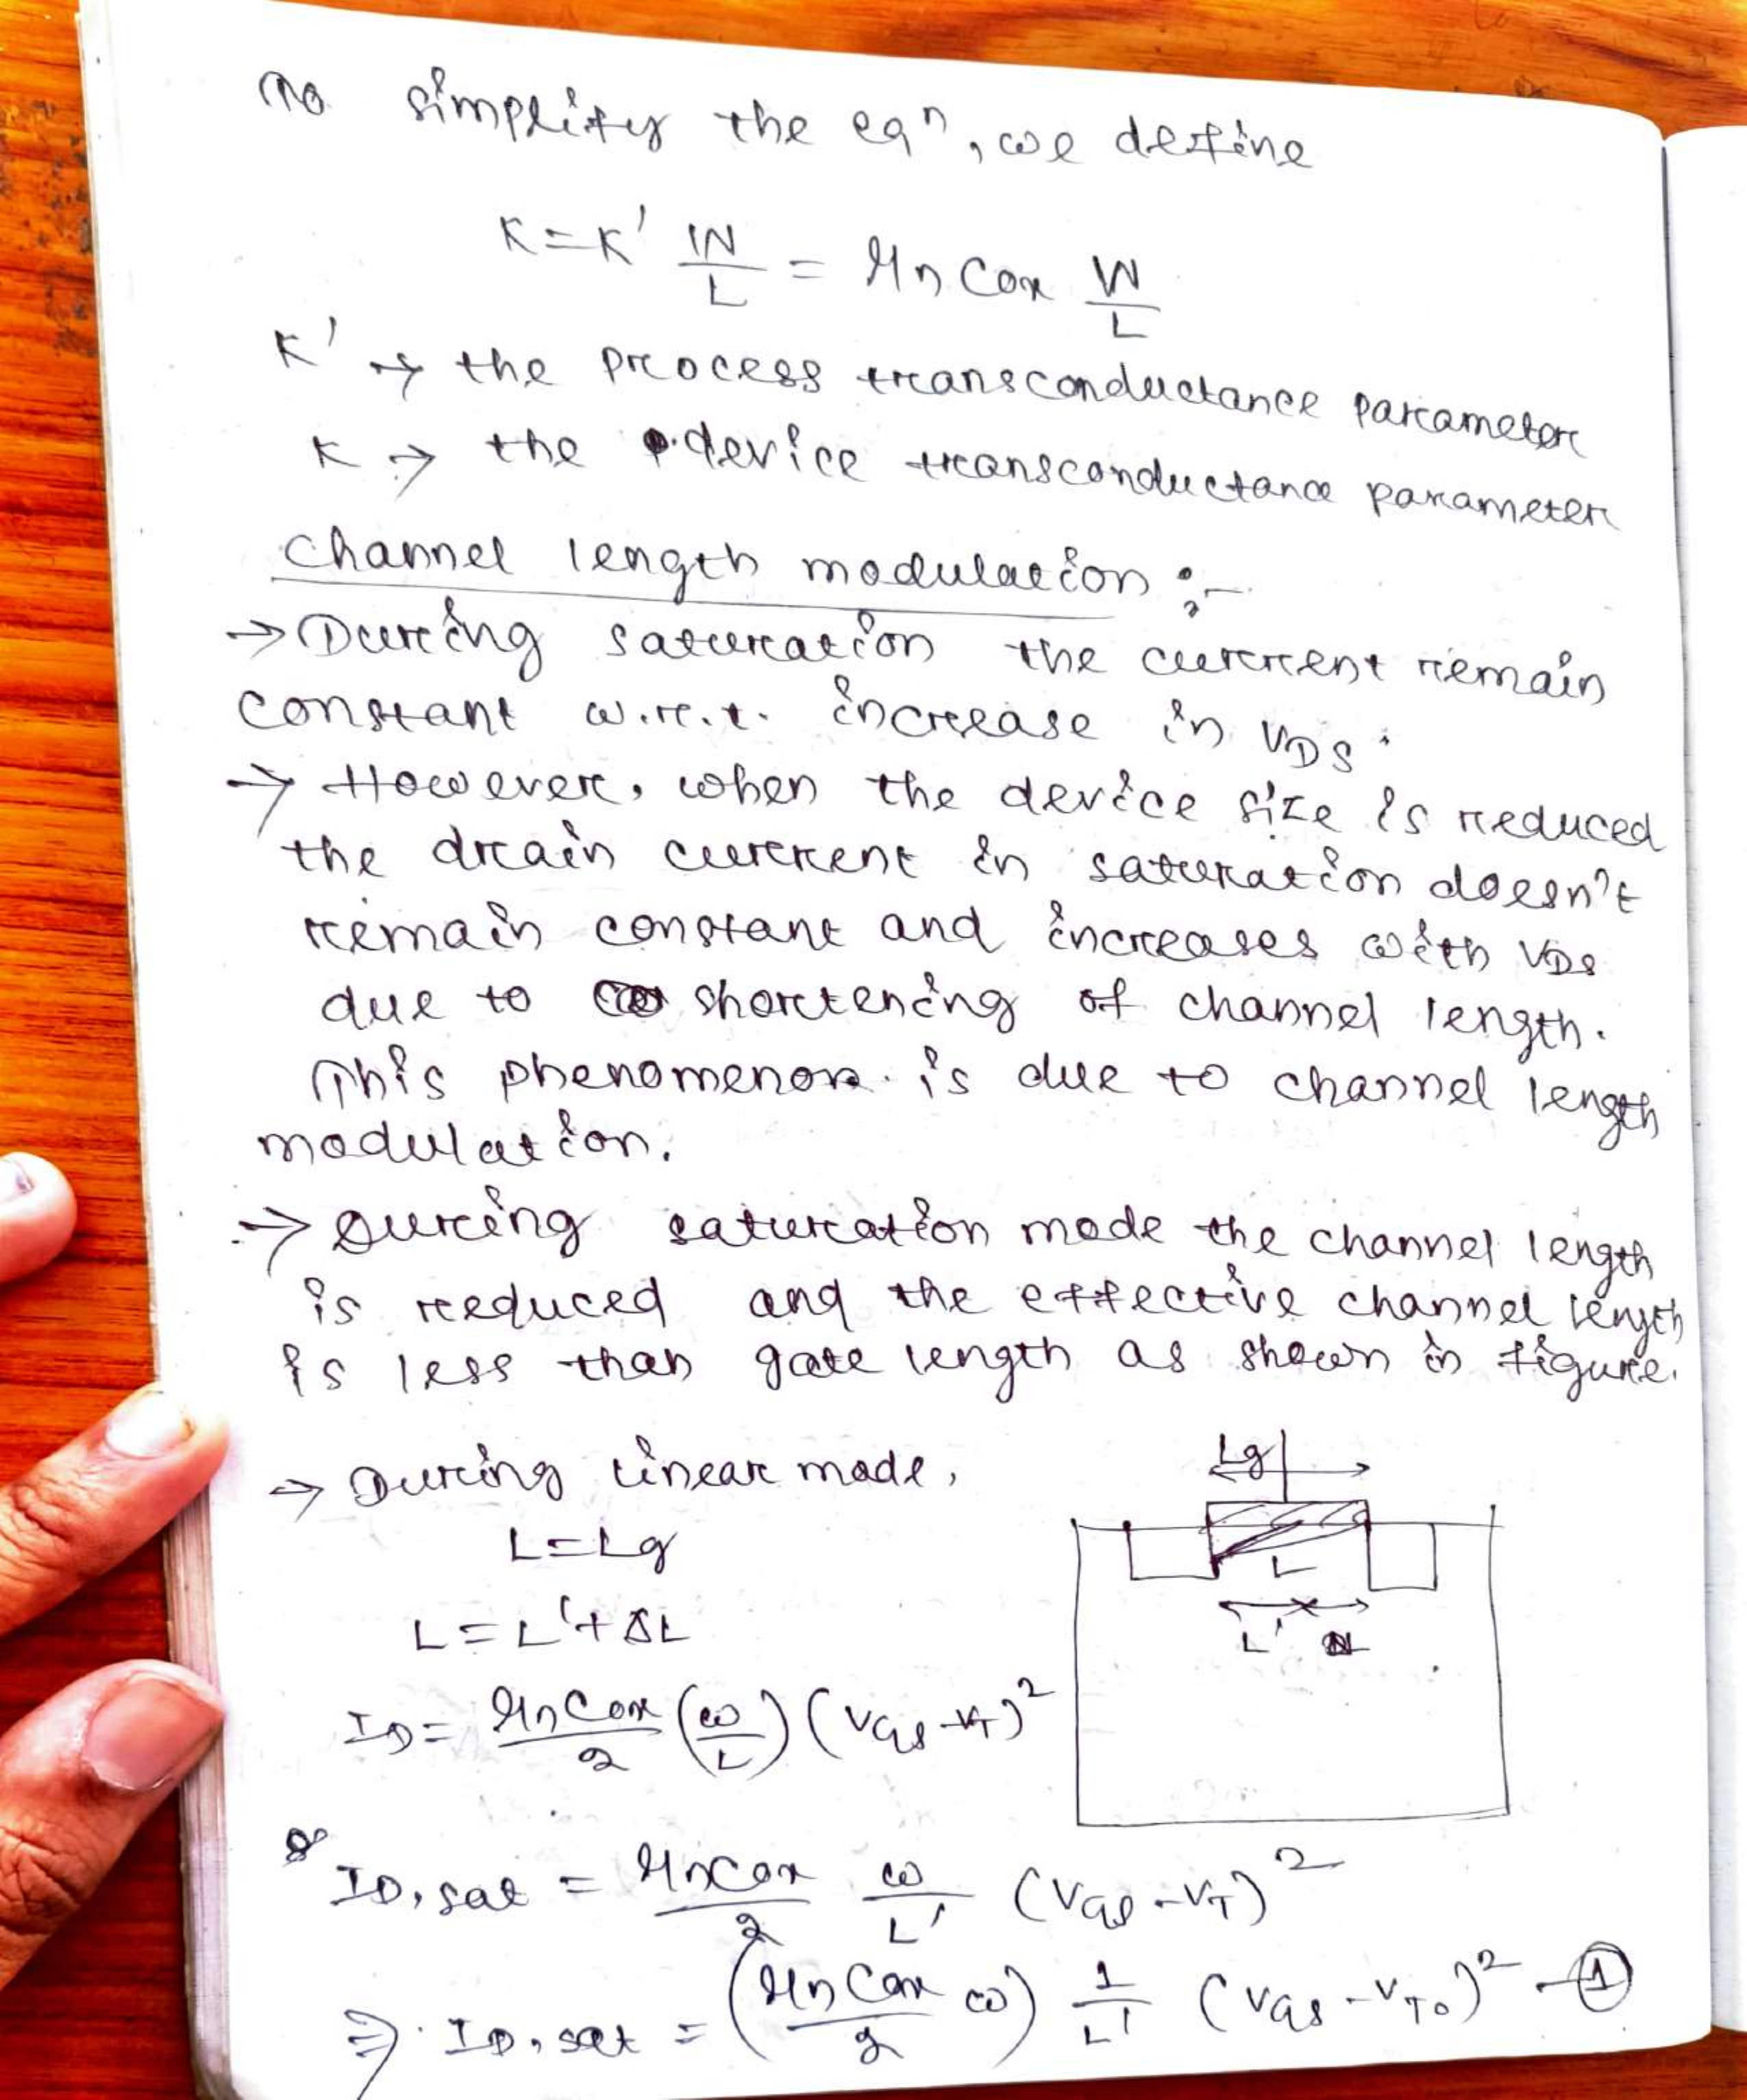 To simplify the eqn, we define
K = K' W/L = μn Cox W/L
K' → the process transconductance parameter
K → the device transconductance parameter
Channel length modulation :-
→ During saturation the current remain
constant w.r.t. increase in VDS.
→ However, when the device size is reduced
the drain current in saturation doesn't
remain constant and increases with VDS
due to shortening of channel length.
This phenomenon is due to channel length
modulation.
→ During saturation mode the channel length
is reduced and the effective channel length
is less than gate length as shown in figure.
→ During linear mode,
L = Lg
L = L' + ΔL
ID = μn Cox/2 (W/L) (VGS - VT)²
Lg
L
L' ΔL
ID, sat = μn Cox/2 W/L' (VGS - VT)²
⇒ ID, sat = (μn Cox/2 W) 1/L' (VGS - VT0)² - ①